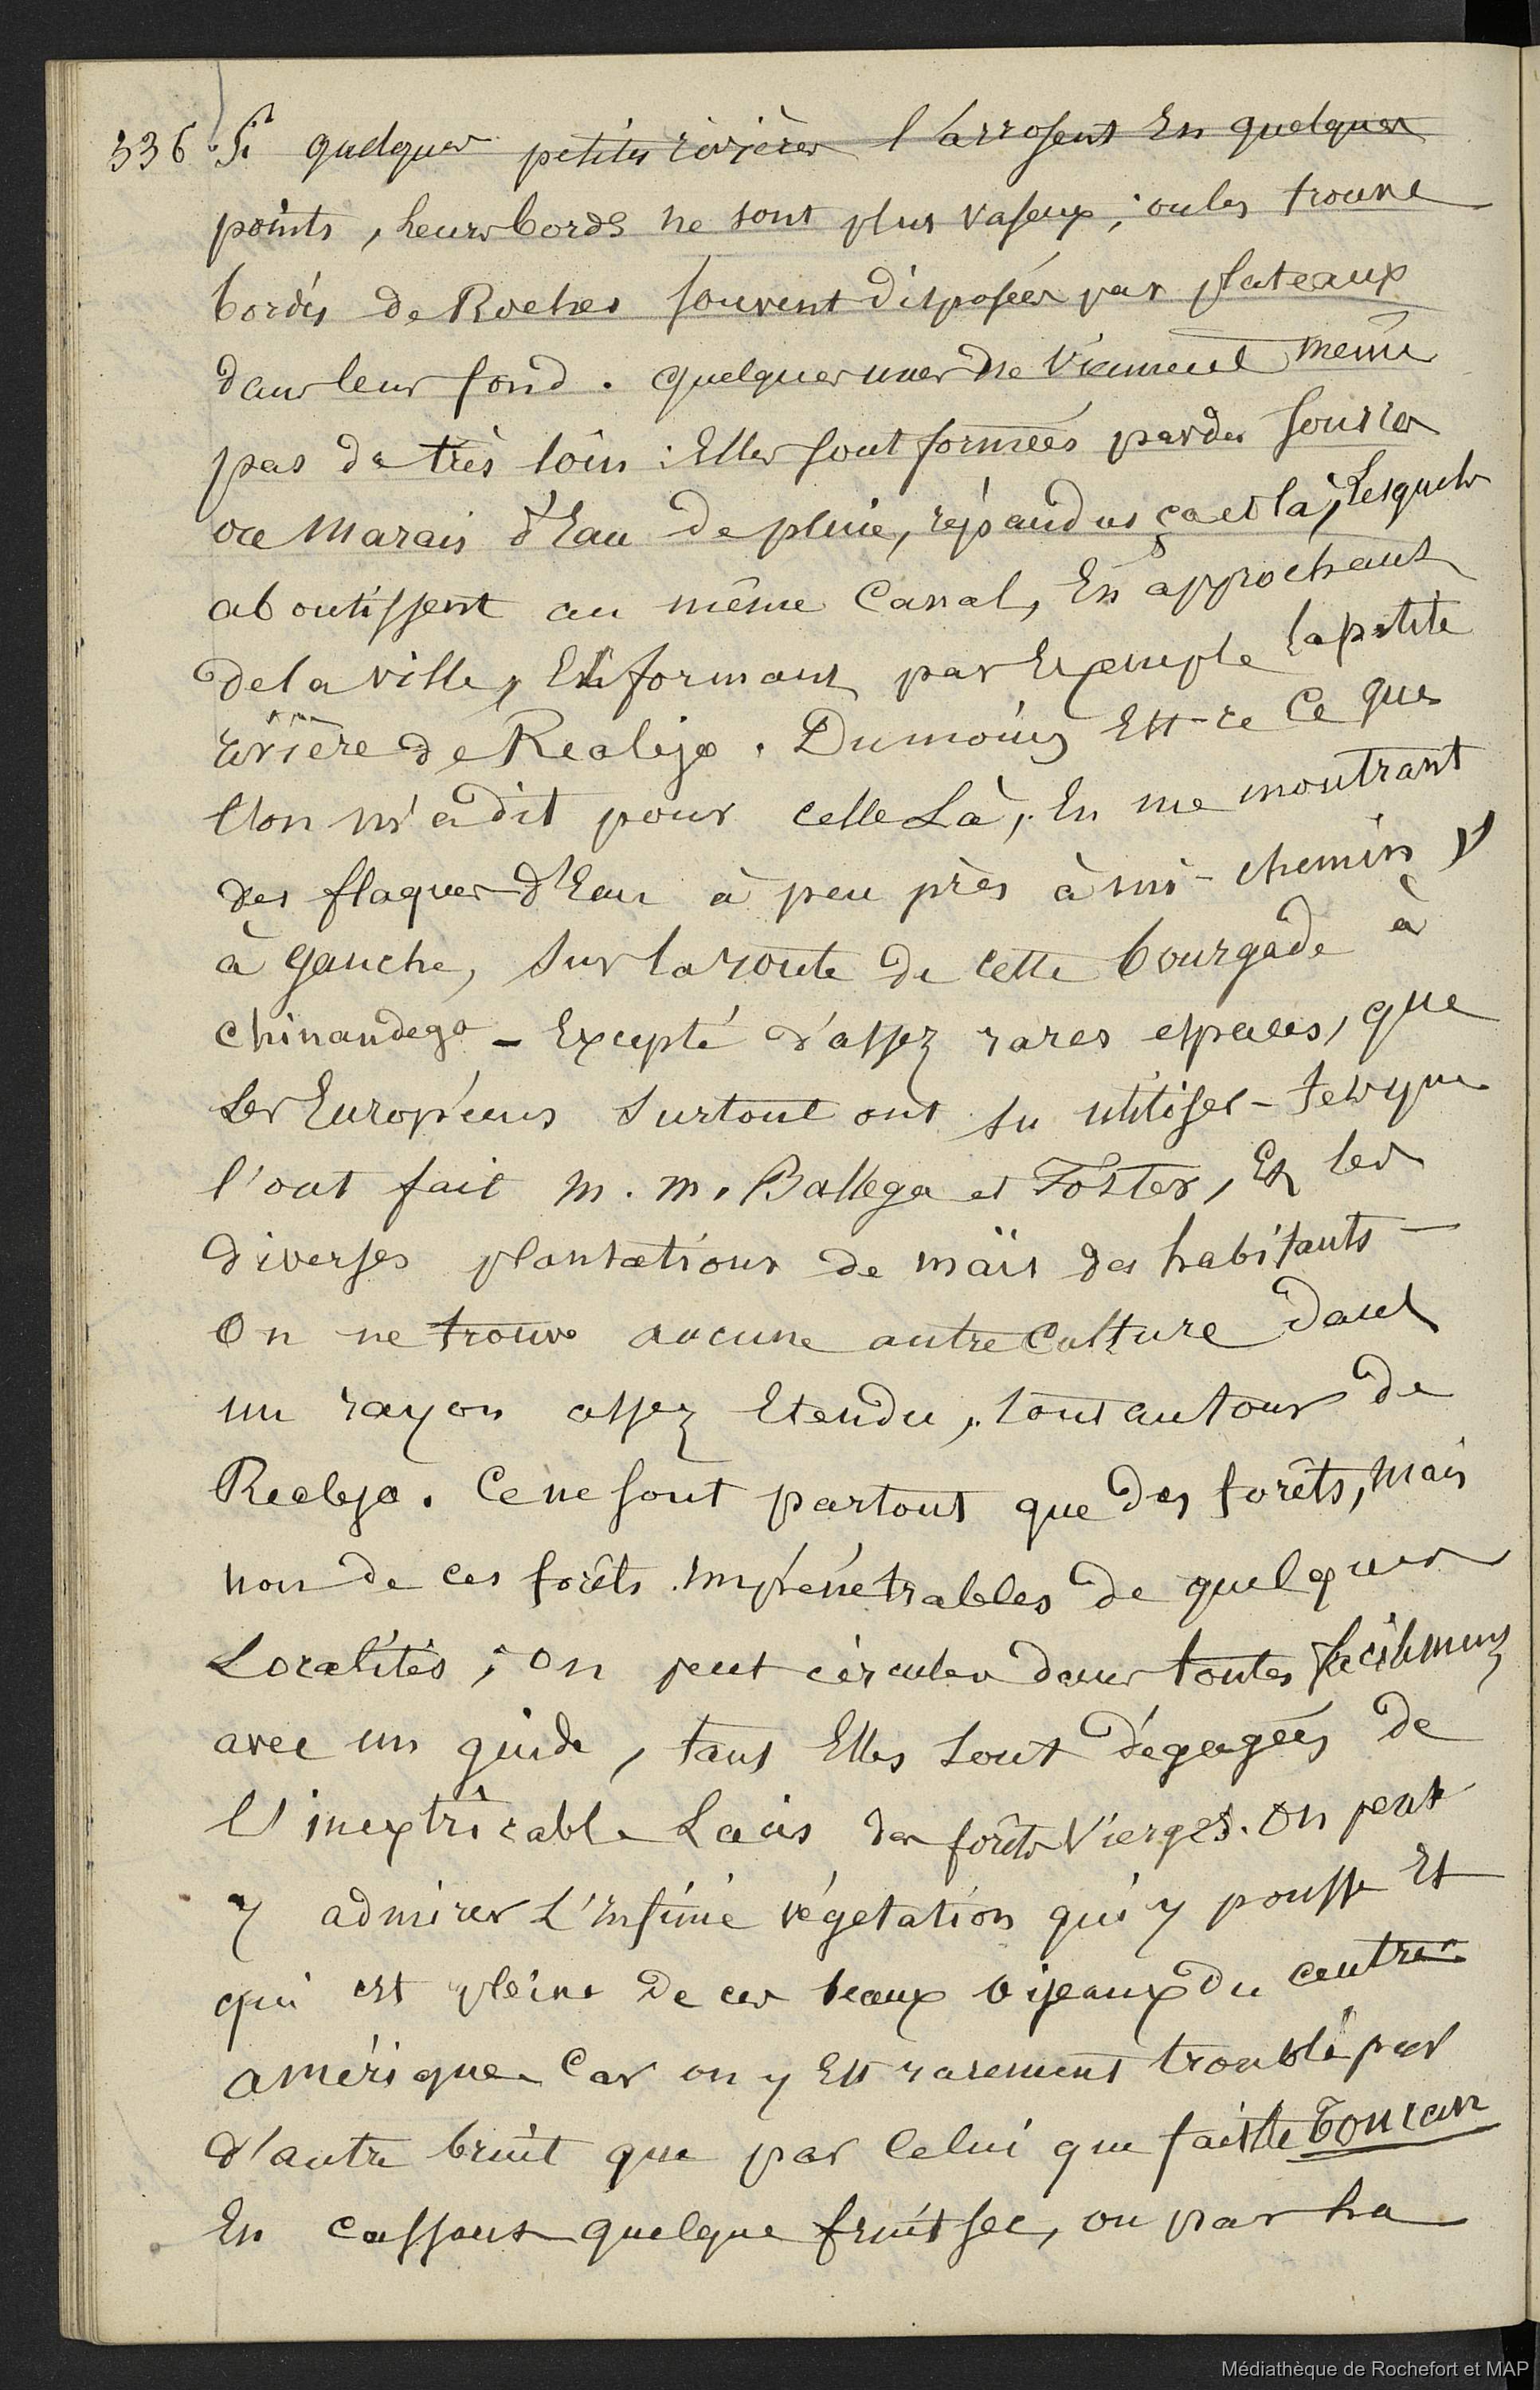 336 Si quelques petites rivières l'arrosent En quelques
points, leurs bords ne sont plus vaseux ; on les trouve
bordés de Roches souvent disposées par plateaux
dans leur fond. quelques unes ne viennent même
pas de très loin : Elles sont formées par des sources
ou Marais d'Eau de pluie, répandus ça et là, Lesquels
aboutissent au même Canal, En approchant
de la ville, En formant par Exemple la petite
rivière de Realejo. Du moins Est-ce Ce que
l'on m'a dit pour celle Là, En me montrant
des flaques d'Eau à peu près à mi-chemin
à gauche, sur la route de cette bourgade à
Chinandega - Excepté d'assez rares espaces, que
Les Européens surtout ont su utiliser - tels que
l'ont fait M. M. Ballega et Foster, Et les
diverses plantations de maïs des habitants -
On ne trouve aucune autre Culture dans
un rayon assez Etendu, tout autour de
Realejo. Ce ne sont partout que des forêts, Mais
non de ces forêts impénétrables de quelques
Localités ; On peut circuler dans toutes facilement
avec un guide, tant Elles sont dégagées de
l'inextricable Lacis des forêts Vierges. On peut
y admirer L'infinie végétation qui y pousse Et
qui est pleine de ces beaux oiseaux du centre
amérique. Car on y Est rarement troublé par
d'autre bruit que par Celui que fait le Toucan
En cassant quelque fruit sec, ou par ha
Médiathèque de Rochefort et MAP